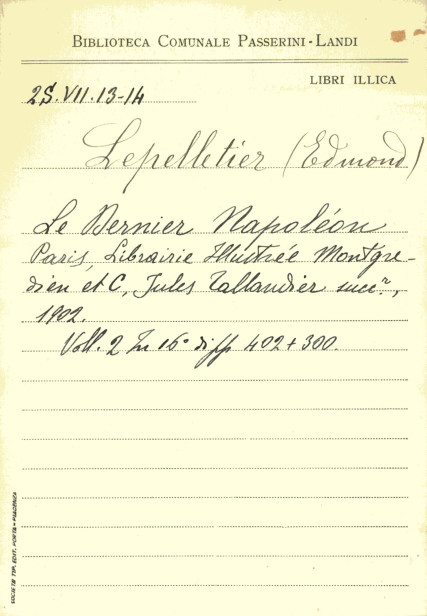 BIBLIOTECA COMUNALE PASSERINI-LANDI
LIBRI ILLICA
2S.VII.13-14
Lepelletier (Edmond)
Le Dernier Napoléon
Paris, Librairie Illustrée Montgre-
dien et C, Jules Tallandier succ.r,
1902.
Voll. 2 In 16° di pp 402+300.
SOCIETÀ TIP. EDIT. PORTA - PIACENZA